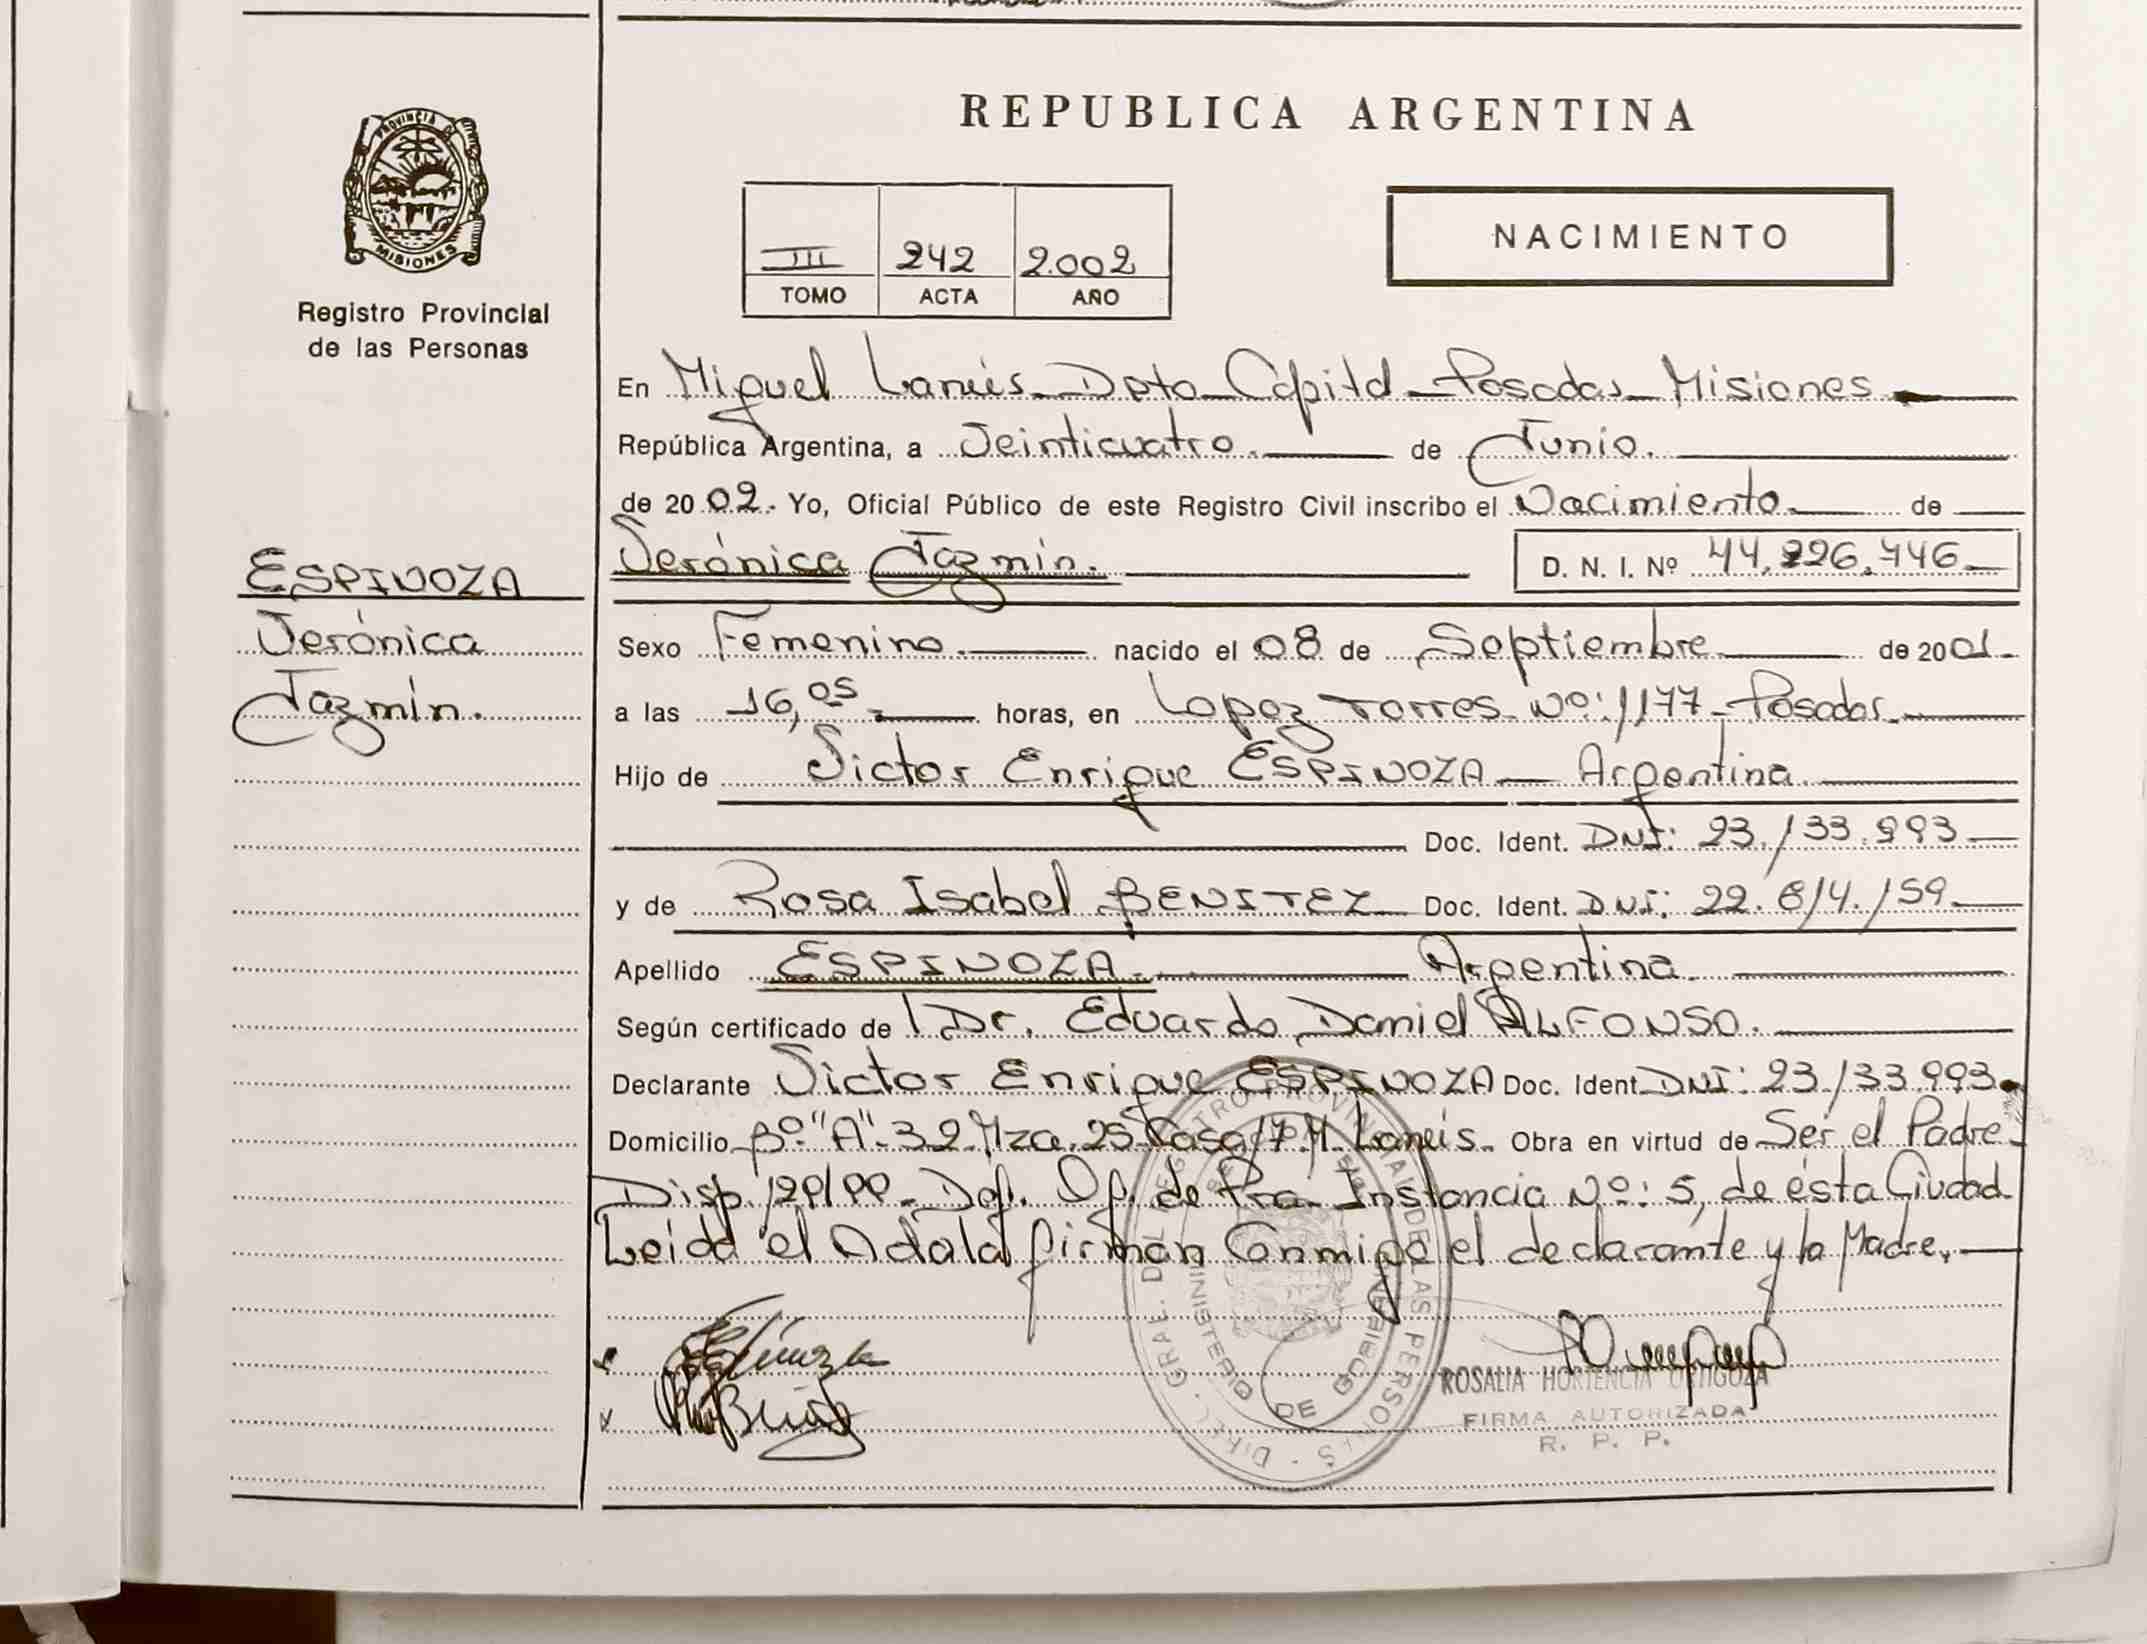 REPUBLICA ARGENTINA
PROVINCIA DE
MISIONES
Registro Provincial
de las Personas
III 242 2.002
TOMO ACTA AÑO
NACIMIENTO
En Miguel Lanús Dpto Capital Posadas Misiones
República Argentina, a Veinticuatro. de Junio.
de 2002. Yo, Oficial Público de este Registro Civil inscribo el Nacimiento de
Verónica Jazmín. D. N. I. Nº 44.226.746
ESPINOZA
Verónica
Jazmín.
Sexo Femenino. nacido el 08 de Septiembre de 2001.
a las 16,05 horas, en Lopez Torres Nº: 1177 Posadas.
Hijo de Victor Enrique ESPINOZA Argentina.
Doc. Ident. DNI: 23.133.993
y de Rosa Isabel BENITEZ Doc. Ident. DNI: 22.814.159
Apellido ESPINOZA. Argentina.
Según certificado de Dr. Eduardo Daniel ALFONSO.
Declarante Victor Enrique ESPINOZA Doc. Ident. DNI: 23.133.993.
Domicilio Bº "A" 32 Mza. 25 Casa 17 M. Lanús. Obra en virtud de Ser el Padre
Disp. Of. de Pra. Instancia Nº: 5, de ésta Ciudad
Leida el Acta la firman Conmigo el declarante y la Madre.
DIREC. GRAL. DEL REGISTRO PROVINCIAL DE LAS PERSONAS
MINISTERIO DE GOBIERNO
ROSALIA HORTENCIA ORTIGOZA
FIRMA AUTORIZADA
R. P. P.